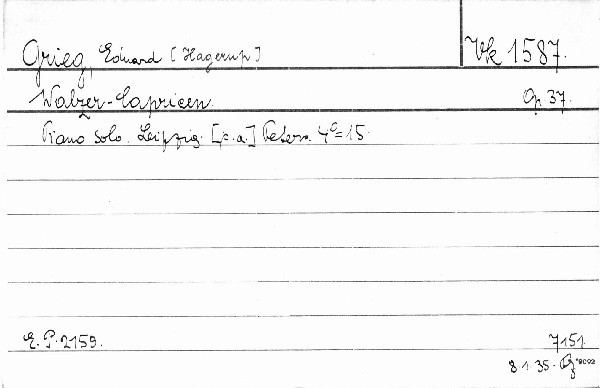 Grieg, Eduard [Hagerup] Vk 1587.
Walzer-Capricen. Op. 37.
Piano solo. Leipzig. [s.a.] Peters. 4º=15.
E. P. 2159. 7151.
8.1.35. 8092